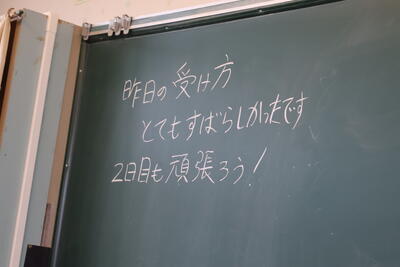 昨日の受け方
とてもすばらしかったです
2日目も頑張ろう!